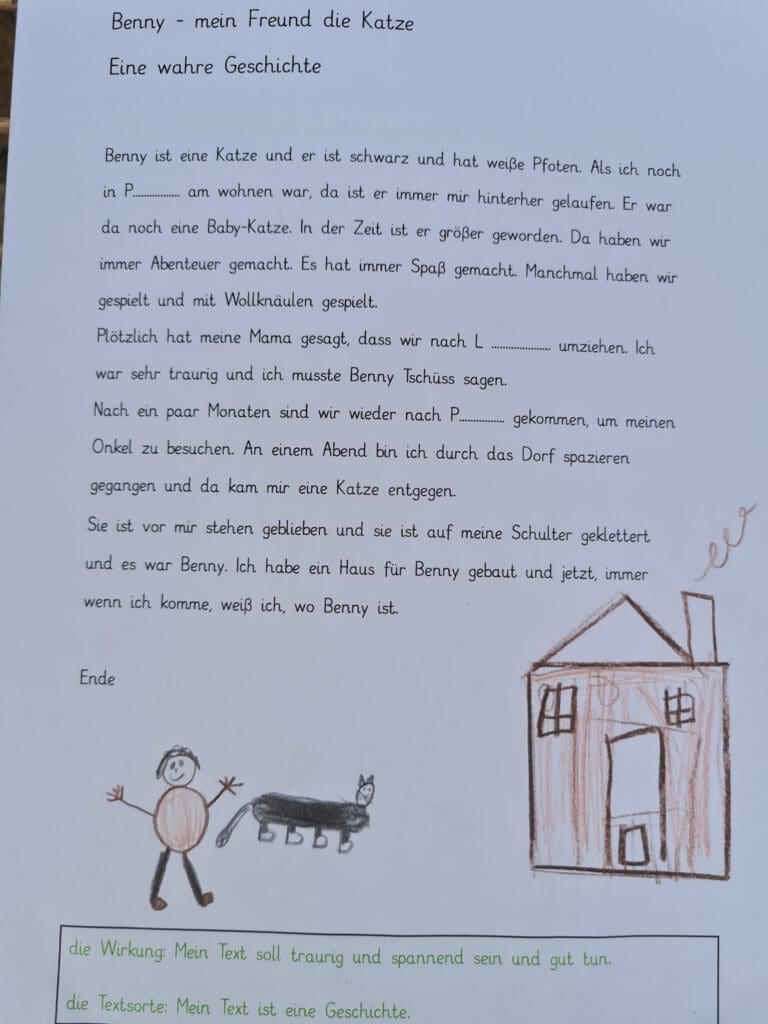 Benny - mein Freund die Katze
Eine wahre Geschichte
Benny ist eine Katze und er ist schwarz und hat weiße Pfoten. Als ich noch
in P................ am wohnen war, da ist er immer mir hinterher gelaufen. Er war
da noch eine Baby-Katze. In der Zeit ist er größer geworden. Da haben wir
immer Abenteuer gemacht. Es hat immer Spaß gemacht. Manchmal haben wir
gespielt und mit Wollknäulen gespielt.
Plötzlich hat meine Mama gesagt, dass wir nach L .................... umziehen. Ich
war sehr traurig und ich musste Benny Tschüss sagen.
Nach ein paar Monaten sind wir wieder nach P................ gekommen, um meinen
Onkel zu besuchen. An einem Abend bin ich durch das Dorf spazieren
gegangen und da kam mir eine Katze entgegen.
Sie ist vor mir stehen geblieben und sie ist auf meine Schulter geklettert
und es war Benny. Ich habe ein Haus für Benny gebaut und jetzt, immer
wenn ich komme, weiß ich, wo Benny ist.
Ende
die Wirkung: Mein Text soll traurig und spannend sein und gut tun.
die Textsorte: Mein Text ist eine Geschichte.